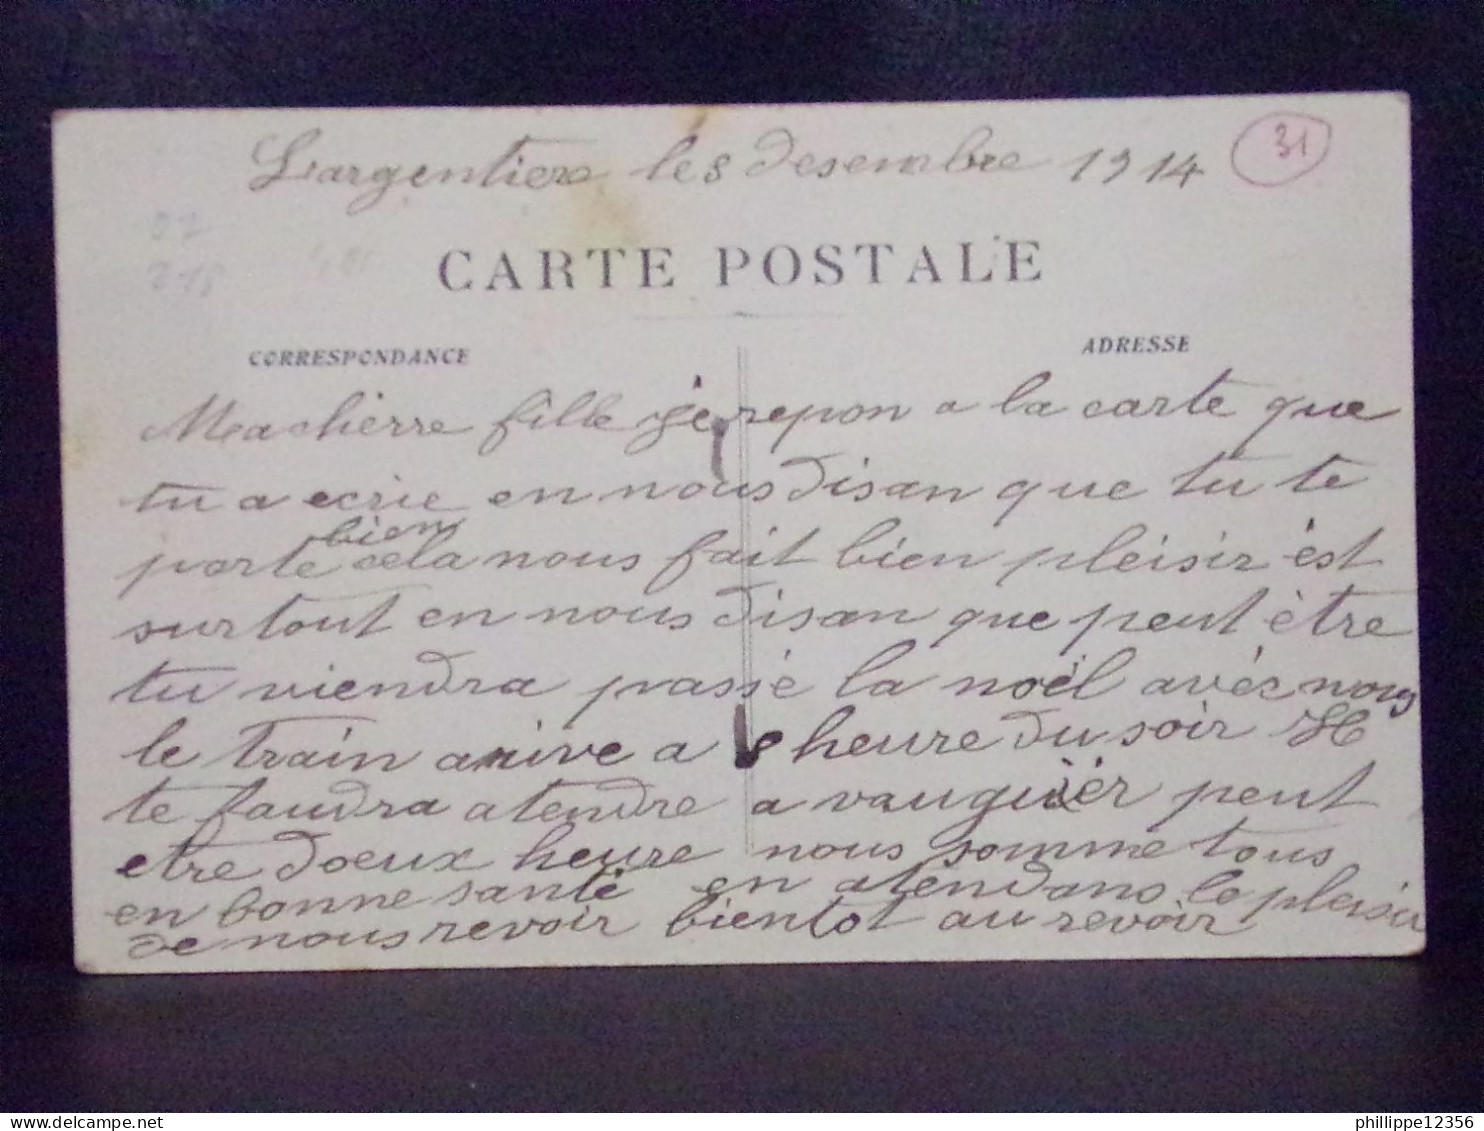 Largentiere le 8 desembre 1914
31
07
CARTE POSTALE
CORRESPONDANCE
ADRESSE
Ma chèrre fille je repon a la carte que
tu a ecrie en nous disan que tu te
porte bien cela nous fait bien pleisir èst
surtout en nous disan que peut ètre
tu viendra passé la noël avéc nous
le train arrive a 8 heure du soir Il
te faudra atendre a vauguièr peut
etre doeux heure nous somme tous
en bonne santé en atendans le pleisir
de nous revoir bientot au revoir
phillippe12356